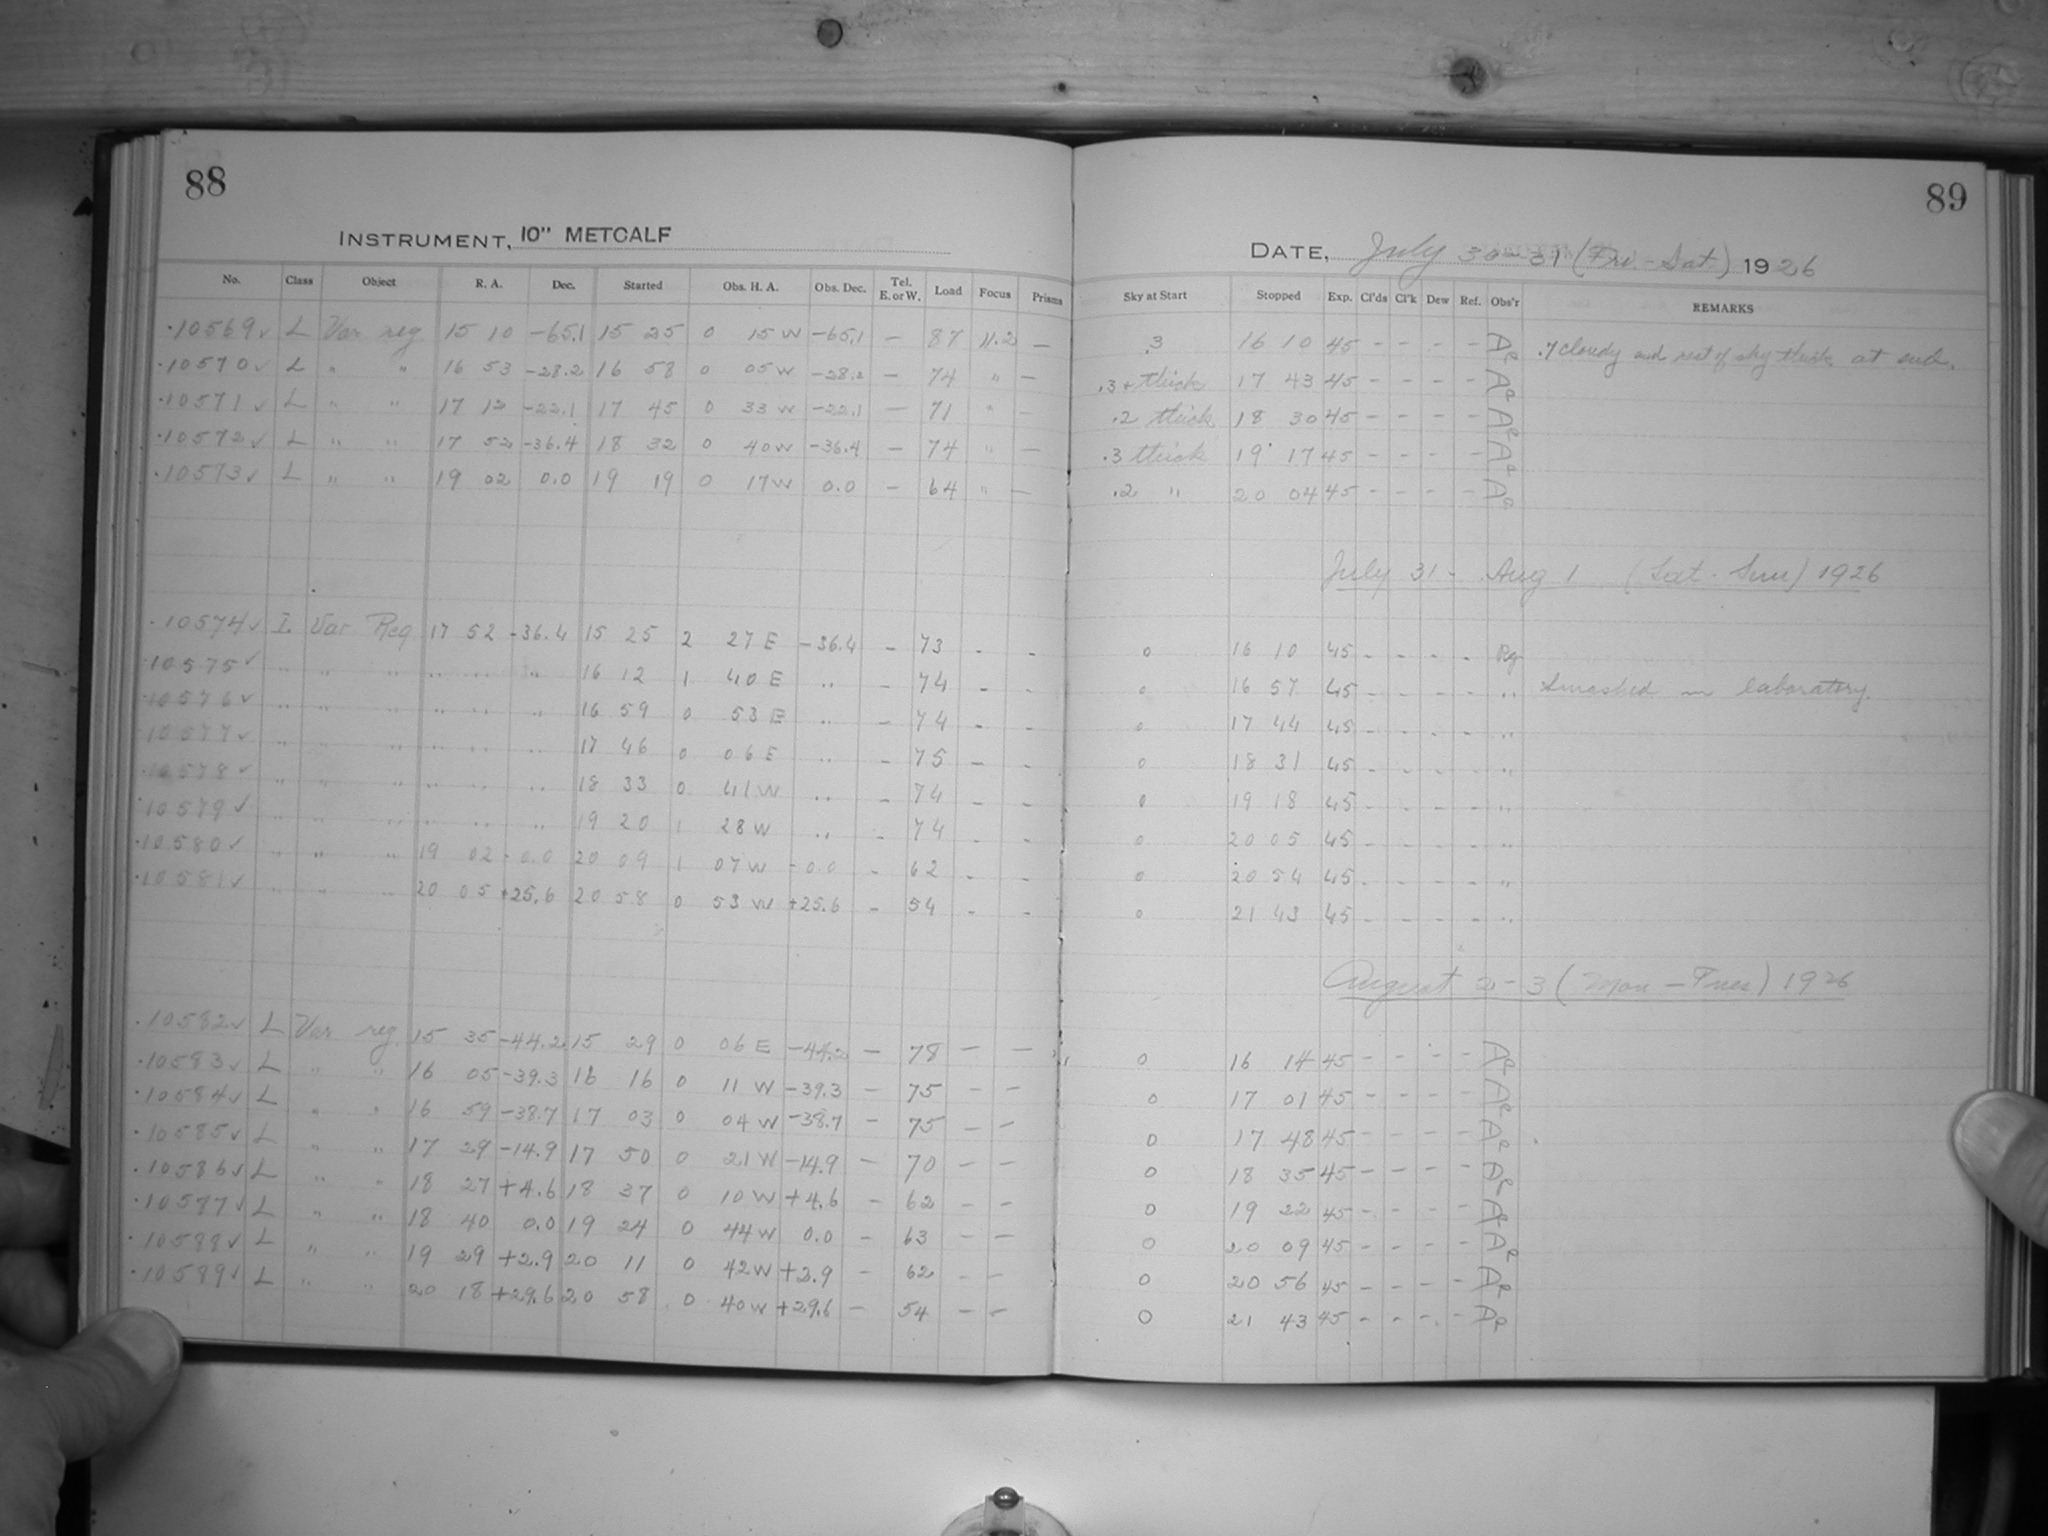 88
INSTRUMENT, 10" METCALF
No. Class Object R. A. Dec. Started Obs. H. A. Obs. Dec. Tel. E. or W. Load Focus Prisms
.10569✓ L Var reg 15 10 -65.1 15 25 0 15 W -65.1 — 87 11.2 —
.10570✓ L " " 16 53 -28.2 16 58 0 05 W -28.2 — 74 " —
.10571✓ L " " 17 12 -22.1 17 45 0 33 W -22.1 — 71 " —
.10572✓ L " " 17 52 -36.4 18 32 0 40 W -36.4 — 74 " —
.10573✓ L " " 19 02 0.0 19 19 0 17 W 0.0 — 64 " —
.10574✓ I. Var Reg 17 52 -36.4 15 25 2 27 E -36.4 - 73 - -
.10575✓ " " " " " " 16 12 1 40 E " - 74 - -
.10576✓ " " " " " " 16 59 0 53 E " - 74 - -
.10577✓ " " " " " " 17 46 0 06 E " - 75 - -
.10578✓ " " " " " " 18 33 0 41 W " - 74 - -
.10579✓ " " " " " " 19 20 1 28 W " - 74 - -
.10580✓ " " " 19 02 -0.0 20 09 1 07 W -0.0 - 62 - -
.10581✓ " " " 20 05 +25.6 20 58 0 53 W +25.6 - 54 - -
.10582✓ L Var reg. 15 35 -44.2 15 29 0 06 E -44.2 — 78 — —
.10583✓ L " " 16 05 -39.3 16 16 0 11 W -39.3 — 75 — —
.10584✓ L " " 16 59 -38.7 17 03 0 04 W -38.7 — 75 — —
.10585✓ L " " 17 29 -14.9 17 50 0 21 W -14.9 — 70 — —
.10586✓ L " " 18 27 +4.6 18 37 0 10 W +4.6 — 62 — —
.10577✓ L " " 18 40 0.0 19 24 0 44 W 0.0 — 63 — —
.10588✓ L " " 19 29 +2.9 20 11 0 42 W +2.9 — 62 — —
.10589✓ L " " 20 18 +29.6 20 58 0 40 W +29.6 — 54 — —
89
DATE, July 30-31 (Fri.-Sat.) 1926
Sky at Start Stopped Exp. Cl'ds Cl'k Dew Ref. Obs'r REMARKS
.3 16 10 45 - - - - .7 cloudy and rest of sky thick at end.
.3+ thick 17 43 45 - - - -
.2 thick 18 30 45 - - - -
.3 thick 19 17 45 - - - -
.2 " 20 04 45 - - - -
July 31 - Aug 1 (Sat - Sun) 1926
0 16 10 45 - - - -
0 16 57 45 - - - - " Smashed in laboratory.
0 17 44 45 - - - - "
0 18 31 45 - - - - "
0 19 18 45 - - - - "
0 20 05 45 - - - - "
0 20 54 45 - - - - "
0 21 43 45 - - - - "
August 2-3 (Mon - Tues) 1926
0 16 14 45 - - - -
0 17 01 45 - - - -
0 17 48 45 - - - -
0 18 35 45 - - - -
0 19 22 45 - - - -
0 20 09 45 - - - -
0 20 56 45 - - - -
0 21 43 45 - - - -